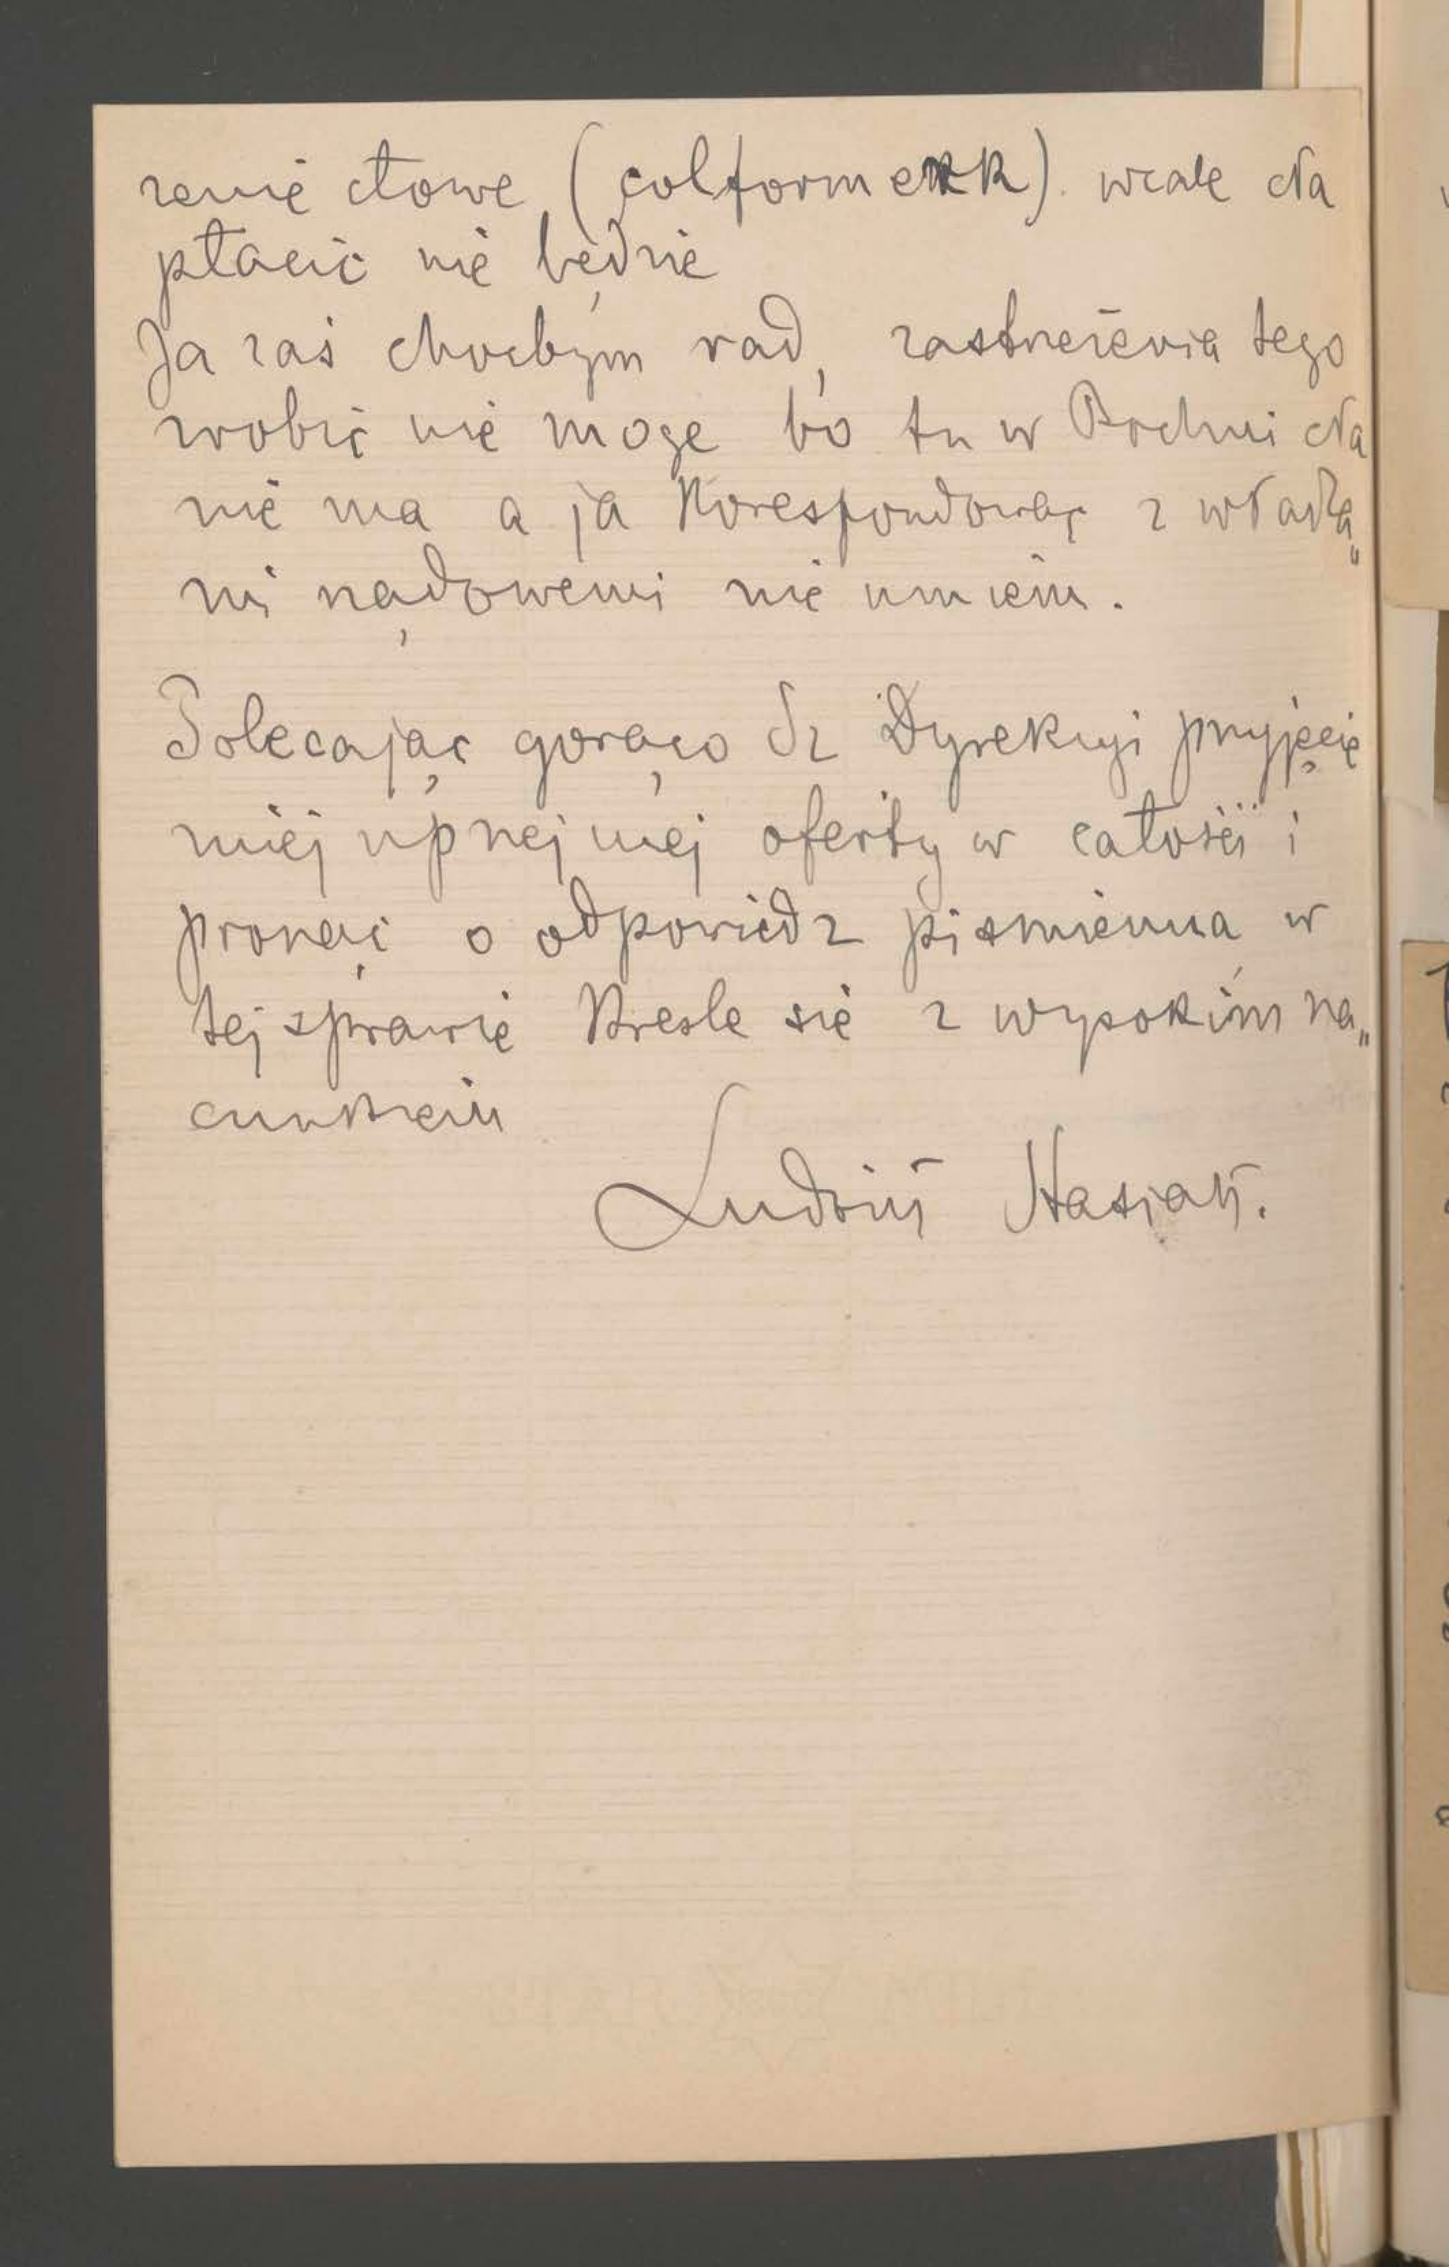 żenie cłowe (colformerk) wcale cła
płacić nie będzie
Ja zaś choćbym rad, zastrzeżenia tego
zrobić nie mogę bo tu w Bochni cła
nie ma a ja korespondować z władza„
mi rządowemi nie umiem.
Polecając gorąco Sz Dyrekcyi przyjęcie
miej uprzejmej oferty w całości i
prosząc o odpowiedz piśmienną w
tej sprawie Kreslę się z wysokim sza„
cunkiem
Ludwik Stasiak.